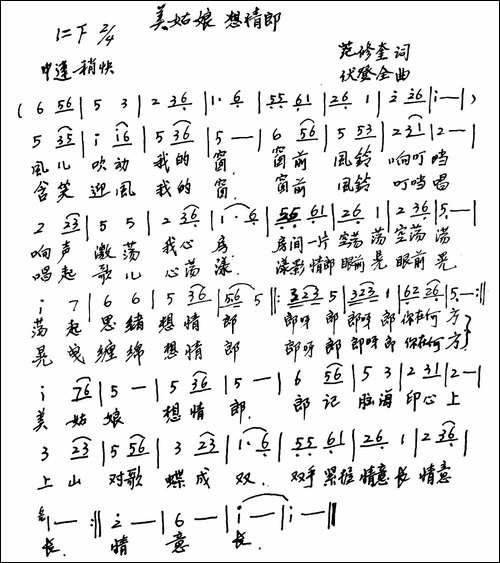 美姑娘 想情郎
1=F 2/4
中速 稍快
范修奎 词
伏登全 曲
( 6 56 | 5 3 | 2 36 | 1· 6 | 55 61 | 26 1 | 2 36 | i — | )
5 35 | i i6 | 5 36 | 5 — | 6 56 | 5 53 | 231 | 2 — |
风儿 吹动 我的 窗. 窗前 风铃 响叮当
含笑 迎风 我的 窗. 窗前 风铃 叮当唱
2 23 | 5 5 | 2 36 | 1· 6 | 55 61 | 26 1 | 2 36 | 5 — |
响声 激荡 我心房 房间一片 空荡荡 空荡荡
唱起 歌儿 心荡漾. 漾影情郎 眼前晃 眼前晃
i 7 | 6 6 | 5 36 | 56 5 ‖: 323 5 | 323 1 | 62 26 | 5 — :‖
荡起 思绪 想情郎 郎呀郎 郎呀郎 你在何方
晃曳 缠绵 想情郎 郎呀郎 郎呀郎 你在何方
i 76 | 5 — | 5 36 | 5 — | 6 56 | 5 3 | 2 31 | 2 — |
美姑娘 想情郎. 郎记 脑海 印心上
3 23 | 5 56 | 3 23 | 1· 6 | 55 61 | 26 1 | 2 36 |
上山 对歌 蝶成双. 双手紧握 情意长 情意
1 — :‖ 2 — | 6 — | i — | i — ‖
长. 情意长.